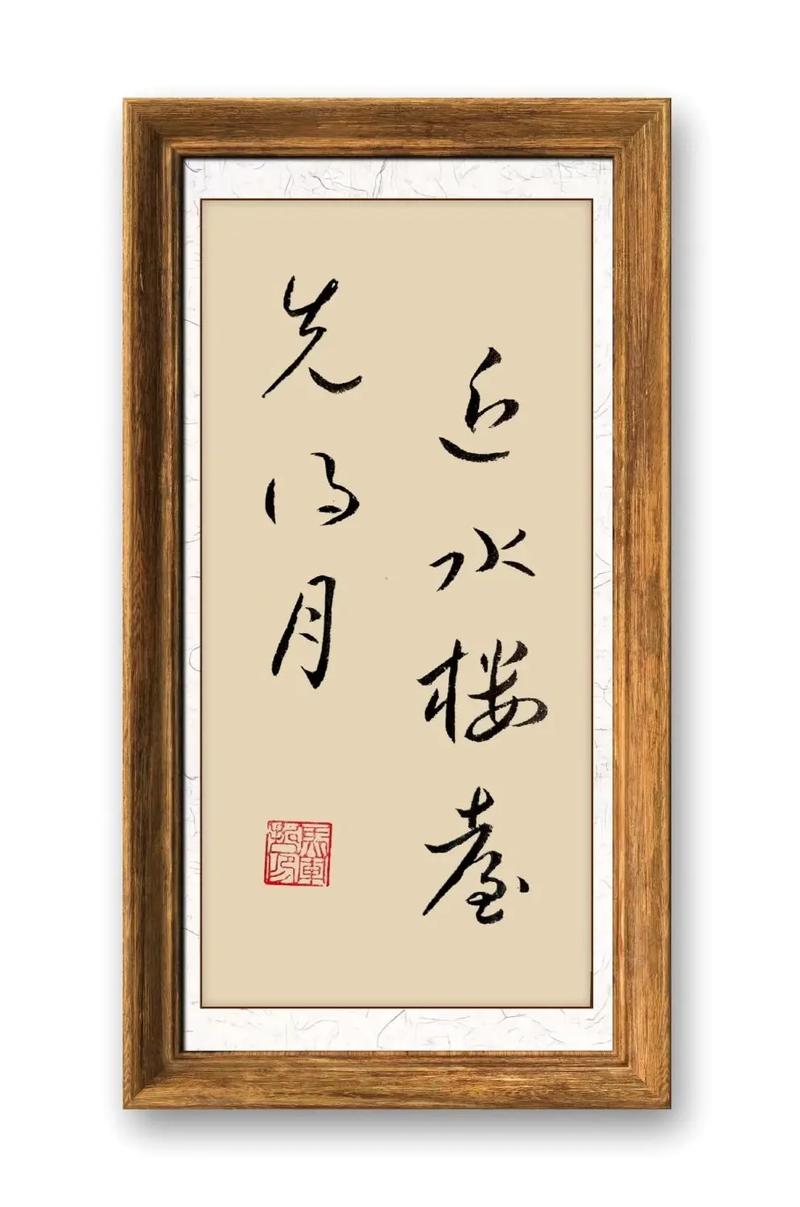 近水楼臺
先得月